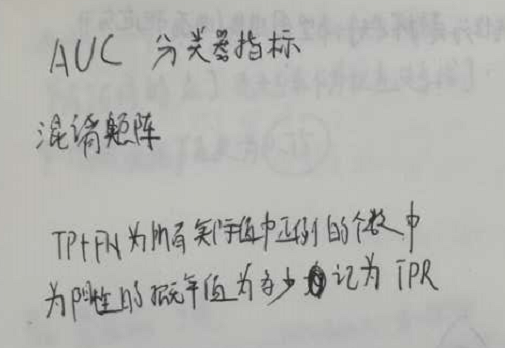 AUC 分类器指标
混淆矩阵
TP+FN为所有实际值中正例的个数中
为阳性的概率值为多少 记为 TPR